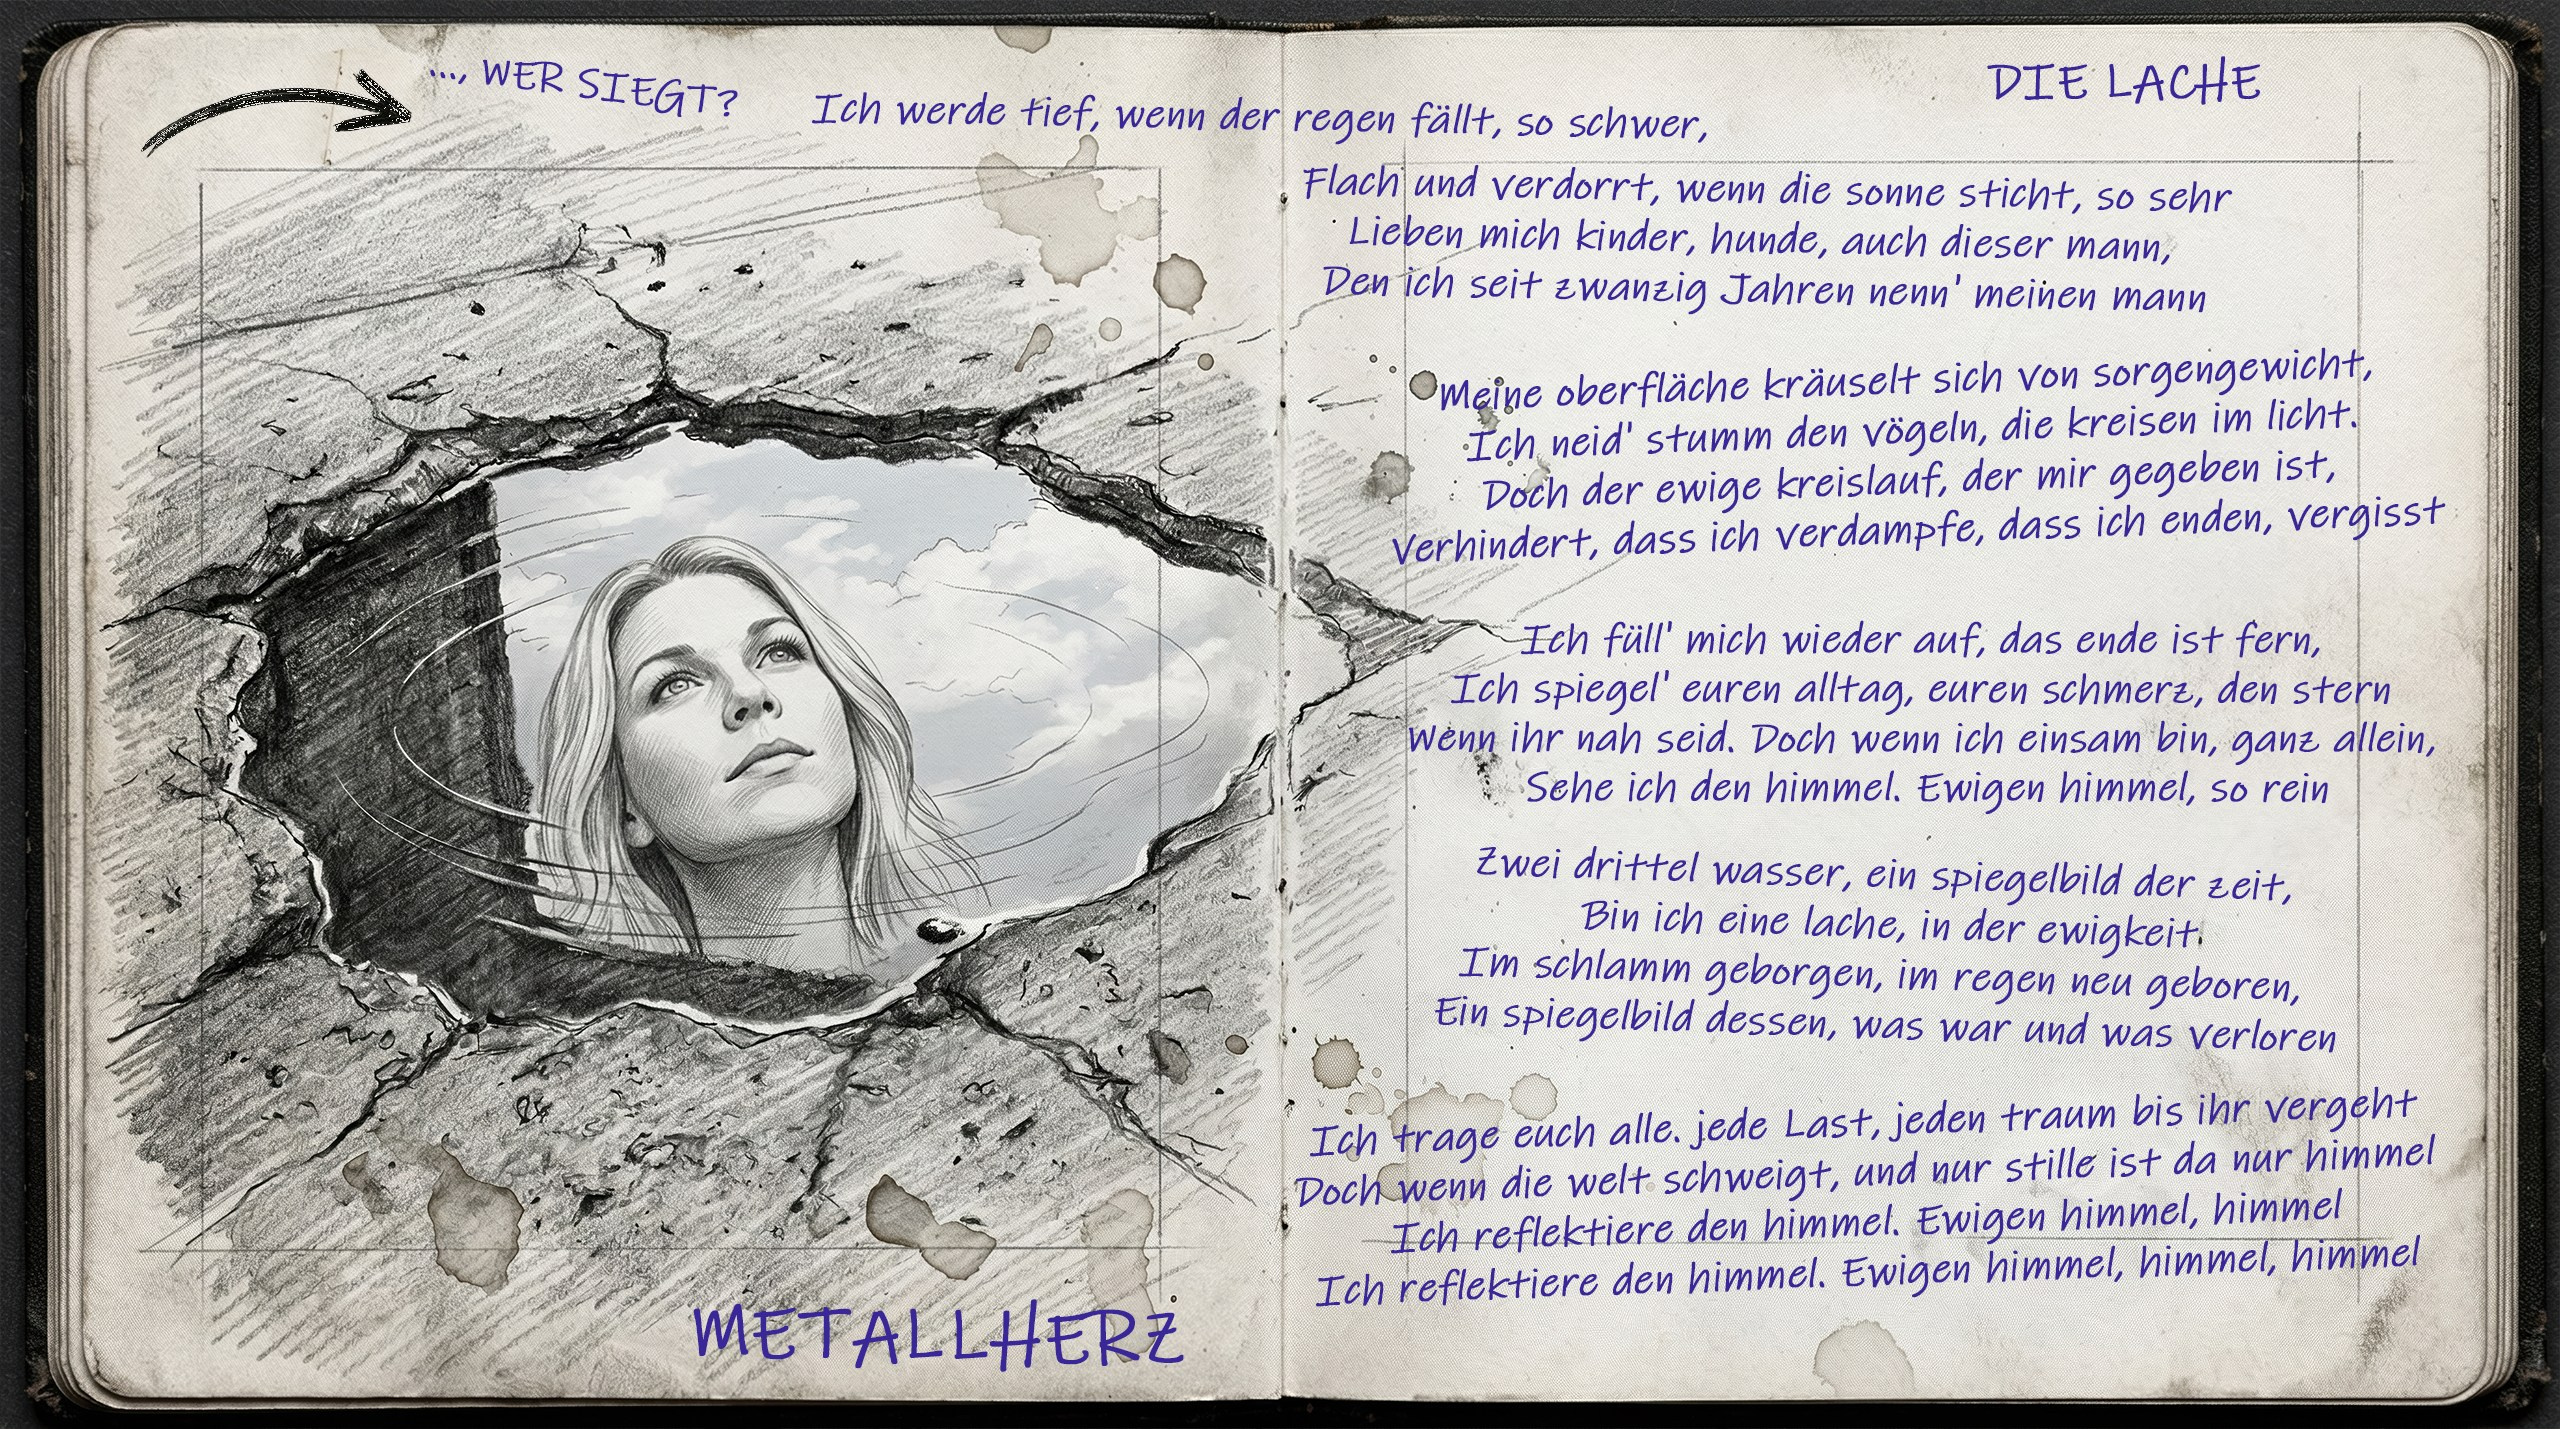 ..., WER SIEGT?
DIE LACHE
Ich werde tief, wenn der regen fällt, so schwer,
Flach und verdorrt, wenn die sonne sticht, so sehr
Lieben mich kinder, hunde, auch dieser mann,
Den ich seit zwanzig Jahren nenn' meinen mann
Meine oberfläche kräuselt sich von sorgengewicht,
Ich neid' stumm den vögeln, die kreisen im licht.
Doch der ewige kreislauf, der mir gegeben ist,
Verhindert, dass ich verdampfe, dass ich enden, vergisst
Ich füll' mich wieder auf, das ende ist fern,
Ich spiegel' euren alltag, euren schmerz, den stern
Wenn ihr nah seid. Doch wenn ich einsam bin, ganz allein,
Sehe ich den himmel. Ewigen himmel, so rein
Zwei drittel wasser, ein spiegelbild der zeit,
Bin ich eine lache, in der ewigkeit.
Im schlamm geborgen, im regen neu geboren,
Ein spiegelbild dessen, was war und was verloren
Ich trage euch alle. jede Last, jeden traum bis ihr vergeht
Doch wenn die welt schweigt, und nur stille ist da nur himmel
Ich reflektiere den himmel. Ewigen himmel, himmel
Ich reflektiere den himmel. Ewigen himmel, himmel, himmel
METALLHERZ